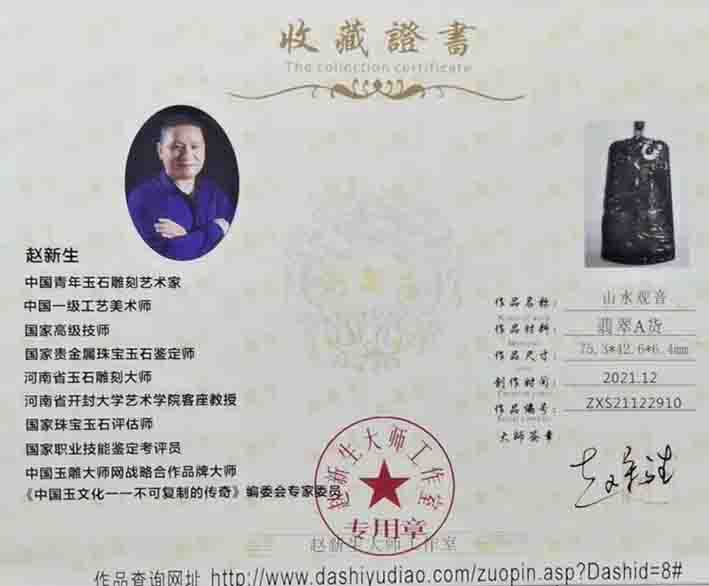 收藏證書
The collection certificate
赵新生
中国青年玉石雕刻艺术家
中国一级工艺美术师
国家高级技师
国家贵金属珠宝玉石鉴定师
河南省玉石雕刻大师
河南省开封大学艺术学院客座教授
国家珠宝玉石评估师
国家职业技能鉴定考评员
中国玉雕大师网战略合作品牌大师
《中国玉文化一一不可复制的传奇》编委会专家委员
作品名称: 山水观音
作品材料: 翡翠A货
作品尺寸: 75.3*42.6*6.4mm
创作时间: 2021.12
作品编号: ZXS21122910
大师签章
赵新生
赵新生大师工作室
专用章
赵新生大师工作室
作品查询网址 http://www.dashiyudiao.com/zuopin.asp?Dashid=8#